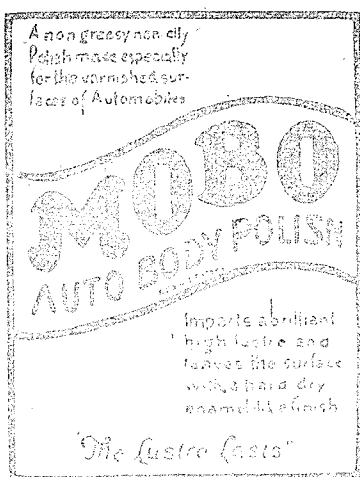 A non greasy non oily
Polish made especially
for the varnished sur-
faces of Automobiles
MOBO
AUTO BODY POLISH
Imparts a brilliant
high lustre and
leaves the surface
with a hard dry
enamel-like finish
"The Lustre Lasts"